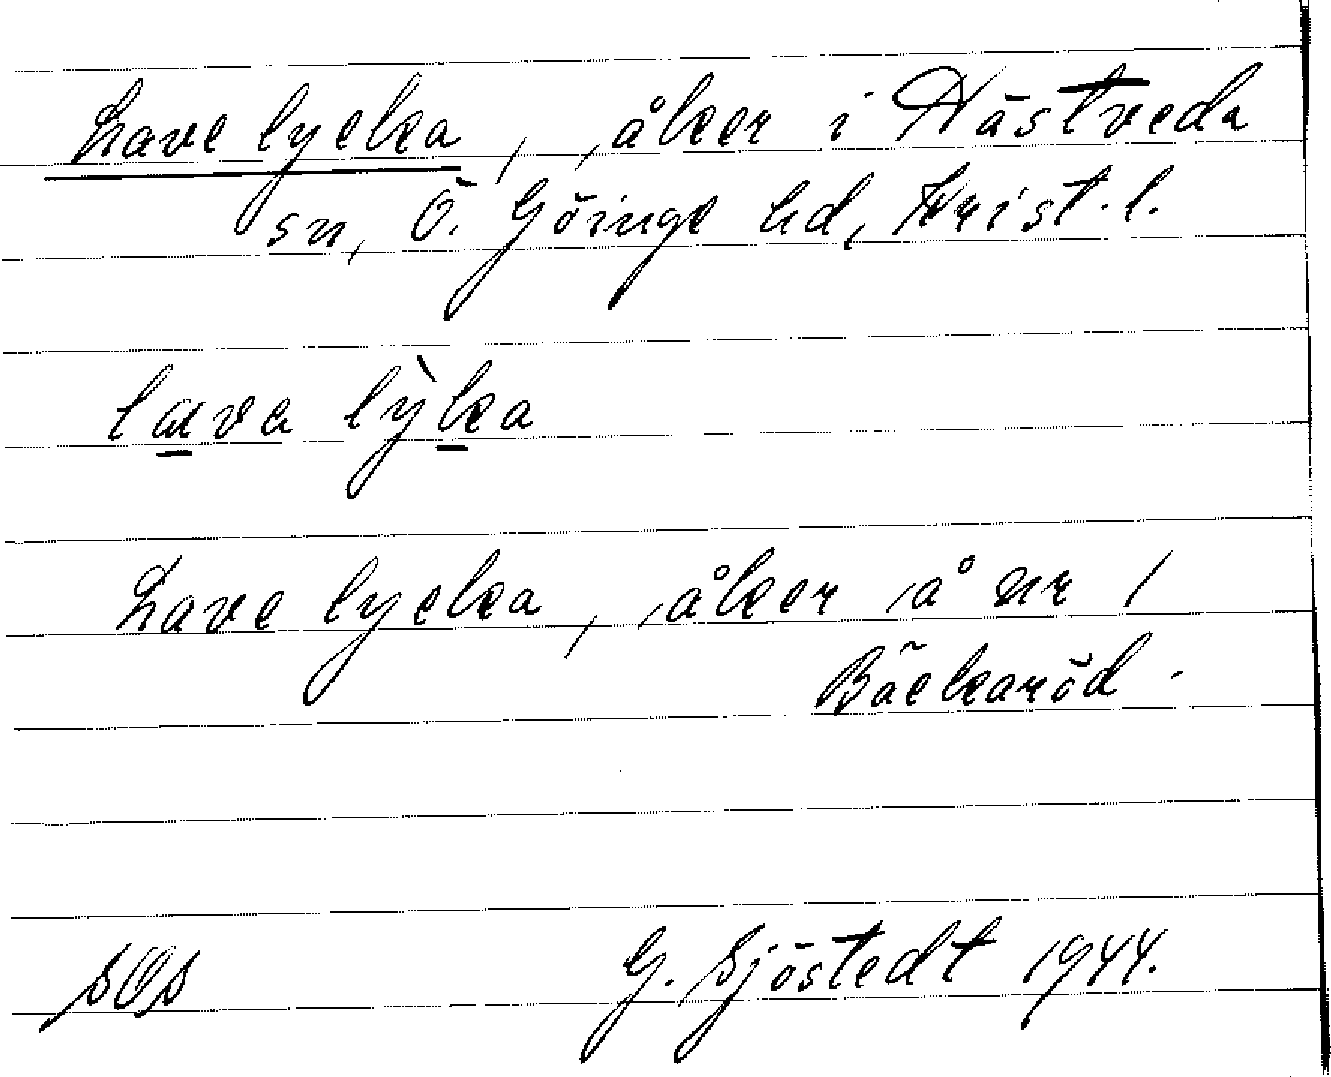 Lave lycka, åker i Hästveda
sn, Ö. Göinge hd, Krist. l.
lava lỳka
Lave lycka, åker å nr 1
Bäckaröd.
SOS G. Sjöstedt 1944.